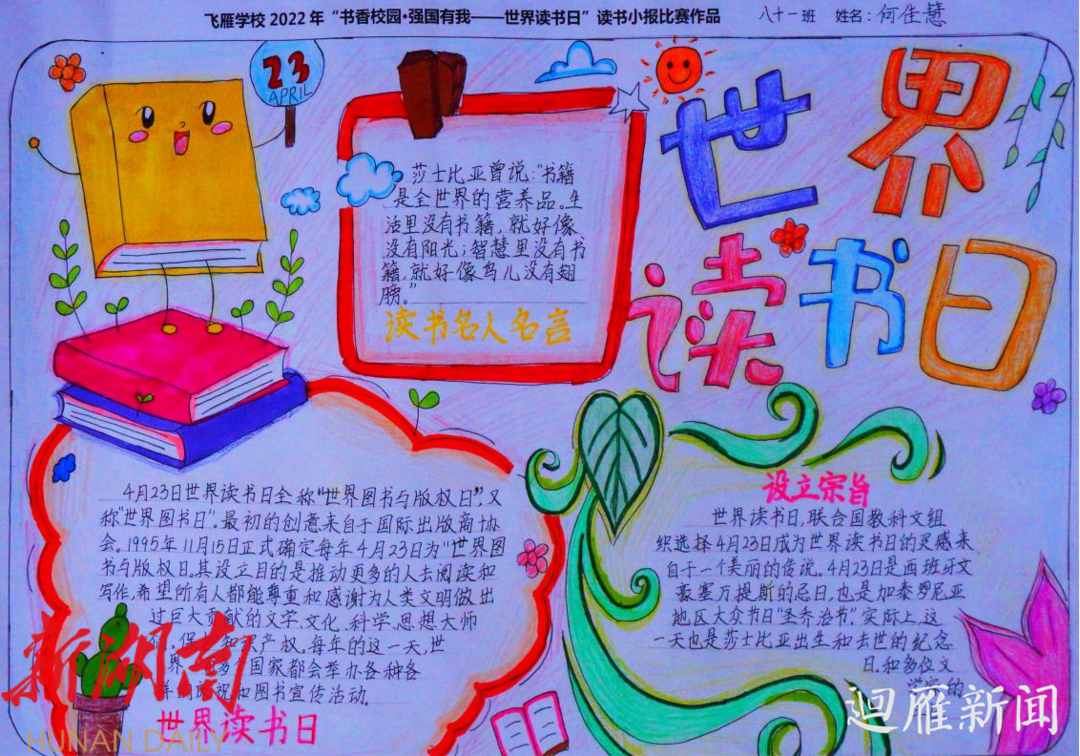 飞雁学校2022年“书香校园·强国有我——世界读书日”读书小报比赛作品 八十一班 姓名:何佳慧
23
APRIL
世界
读书日
莎士比亚曾说:“书籍
是全世界的营养品。生
活里没有书籍,就好像
没有阳光;智慧里没有书
籍,就好像鸟儿没有翅
膀。”
读书名人名言
4月23日世界读书日全称“世界图书与版权日”,又
称“世界图书日”。最初的创意来自于国际出版商协
会。1995年11月15日正式确定每年4月23日为“世界图
书与版权日。其设立目的是推动更多的人去阅读和
写作,希望所有人都能尊重和感谢为人类文明做出
过巨大贡献的文学、文化、科学、思想大师
保 和 产权。每年的这一天,世
界 多国家都会举办各种各
祝和图书宣传活动.
世界读书日
设立宗旨
世界读书日,联合国教科文组
织选择4月23日成为世界读书日的灵感来
自于一个美丽的传说。4月23日是西班牙文
豪塞万提斯的忌日,也是加泰罗尼亚
地区大众节日“圣乔治节”.实际上,这
一天也是莎士比亚出生和去世的纪念
日,和多位文
的
新湖南
HUNAN DAILY
迴雁新闻